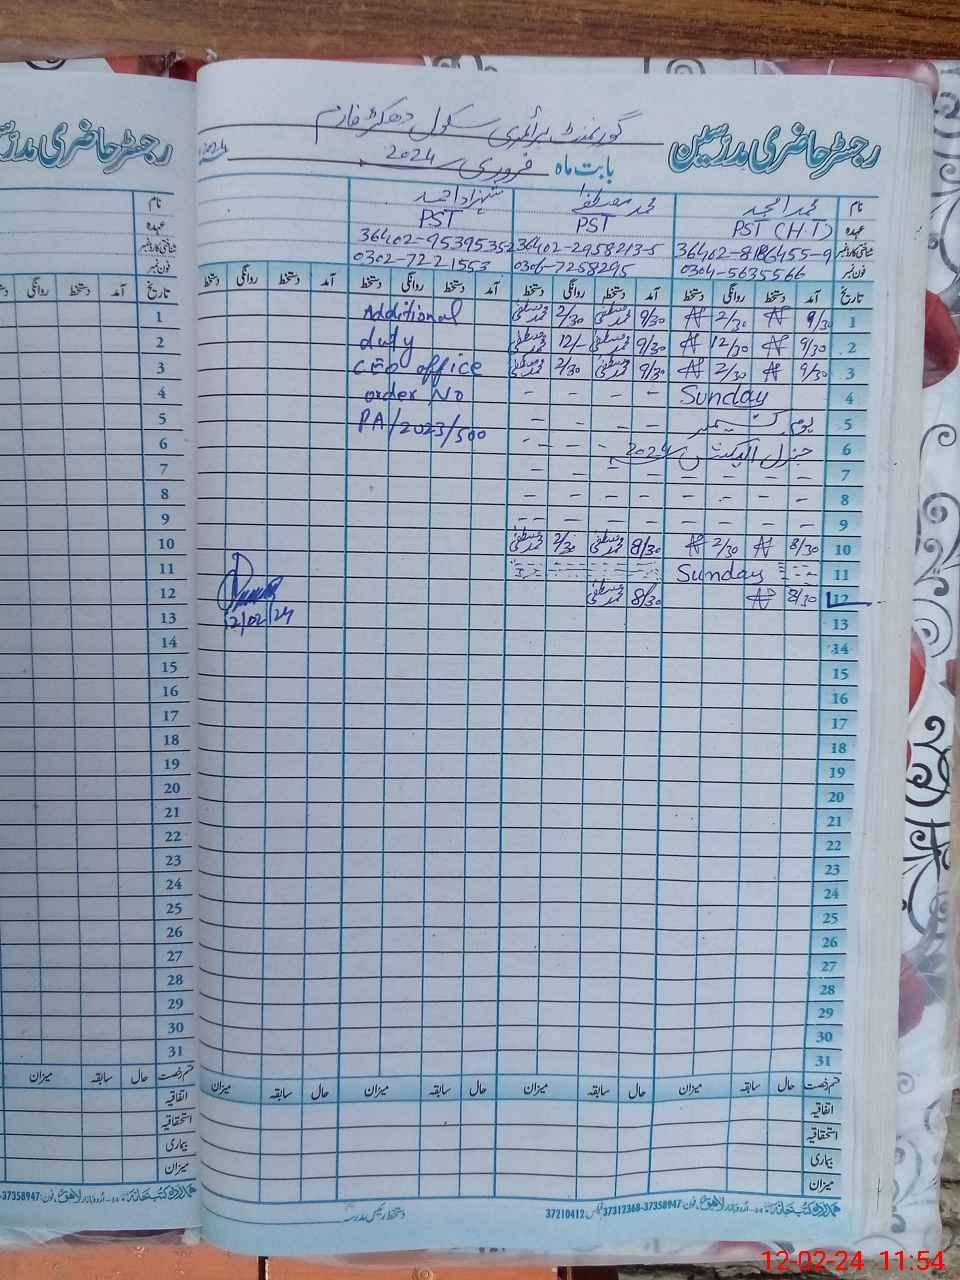 رجسٹر حاضری مدرسین
گورنمنٹ پرائمری سکول
رجسٹر حاضری مدرسین
بابت ماہ فروری 2024
نام محمد امجد محمد مصطفیٰ شہزاد احمد
نام
عہدہ PST (H.T) PST PST
عہدہ
شناختی کارڈ نمبر 36402-2958213-5
شناختی کارڈ نمبر
فون نمبر 0304-5635566 0306-7258295 0302-7221553
فون نمبر
تاریخ آمد دستخط روانگی دستخط آمد دستخط روانگی دستخط آمد دستخط روانگی دستخط آمد دستخط روانگی دستخط
تاریخ آمد دستخط روانگی
1 9/30 2/30 9/30 محمد مصطفیٰ 2/30 محمد مصطفیٰ Additional
1
2 9/30 12/30 9/30 محمد مصطفیٰ 12/- محمد مصطفیٰ duty
2
3 9/30 2/30 9/30 محمد مصطفیٰ 2/30 محمد مصطفیٰ CEO office
3
4 Sunday - - - - order No
4
5 یوم کشمیر - - - - PA/2023/500
5
6 جنرل الیکشن 2024 - - - -
6
7 - - - - - -
7
8 - - - - - - - -
8
9 - - - - - - - -
9
10 8/30 2/30 8/30 محمد مصطفیٰ 2/30 محمد مصطفیٰ
10
11 Sunday
11
12 8/30 8/30 محمد مصطفیٰ
12
12/02/24
13
13
14
14
15
15
16
16
17
17
18
18
19
19
20
20
21
21
22
22
23
23
24
24
25
25
26
26
27
27
28
28
29
29
30
30
31
31
قسم رخصت حال سابقہ میزان حال سابقہ میزان حال سابقہ میزان حال سابقہ میزان
قسم رخصت حال سابقہ میزان
اتفاقیہ
اتفاقیہ
استحقاقیہ
استحقاقیہ
بیماری
بیماری
میزان
میزان
ہمدرد کتب خانہ اردو بازار لاہور فون: 37358947-37312368 فیکس: 37210412
ہمدرد کتب خانہ اردو بازار لاہور فون: 37358947-
دستخط رئیس مدرسہ
12-02-24 11:54